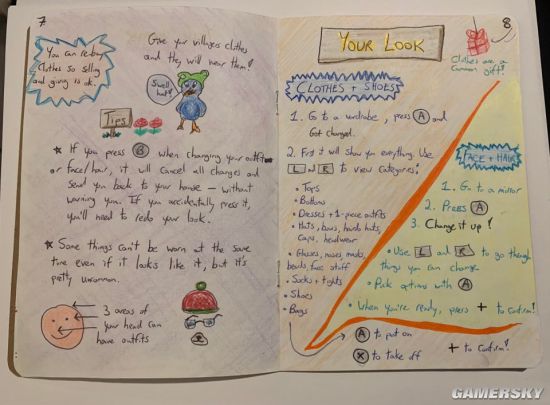 7
You can re-buy
clothes so selling
and giving is ok.
Give your villagers clothes
and they will wear them!
Swell
hat!
Tips
★ If you press B when changing your outfit
or face/hair, it will cancel all changes and
send you back to your house – without
warning you. If you accidentally press it,
you'll need to redo your look.
★ Some things can't be worn at the same
time even if it looks like it, but it's
pretty uncommon.
3 areas of
your head can
have outfits
8
YOUR LOOK
Clothes are a
common gift!
CLOTHES + SHOES
1. Go to a wardrobe, press A and
Get changed.
2. First it will show you everything. Use
L and R to view categories:
• Tops
• Bottoms
• Dresses + 1-piece outfits
• Hats, bows, hard hats,
caps, headwear
• Glasses, noses, masks,
beards, face stuff
• Socks + tights
• Shoes
• Bags
A to put on
X to take off
+ to confirm!
FACE + HAIR
1. Go to a mirror
2. Press A
3. Change it up!
• Use L and R to go through
things you can change
• Pick options with A
• When you're ready, press + to confirm!
GAMERSKY